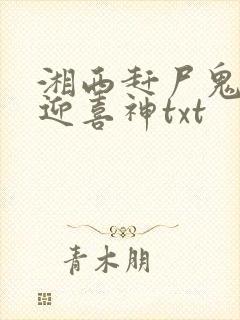 湘西赶尸鬼
迎喜神txt
青木朋